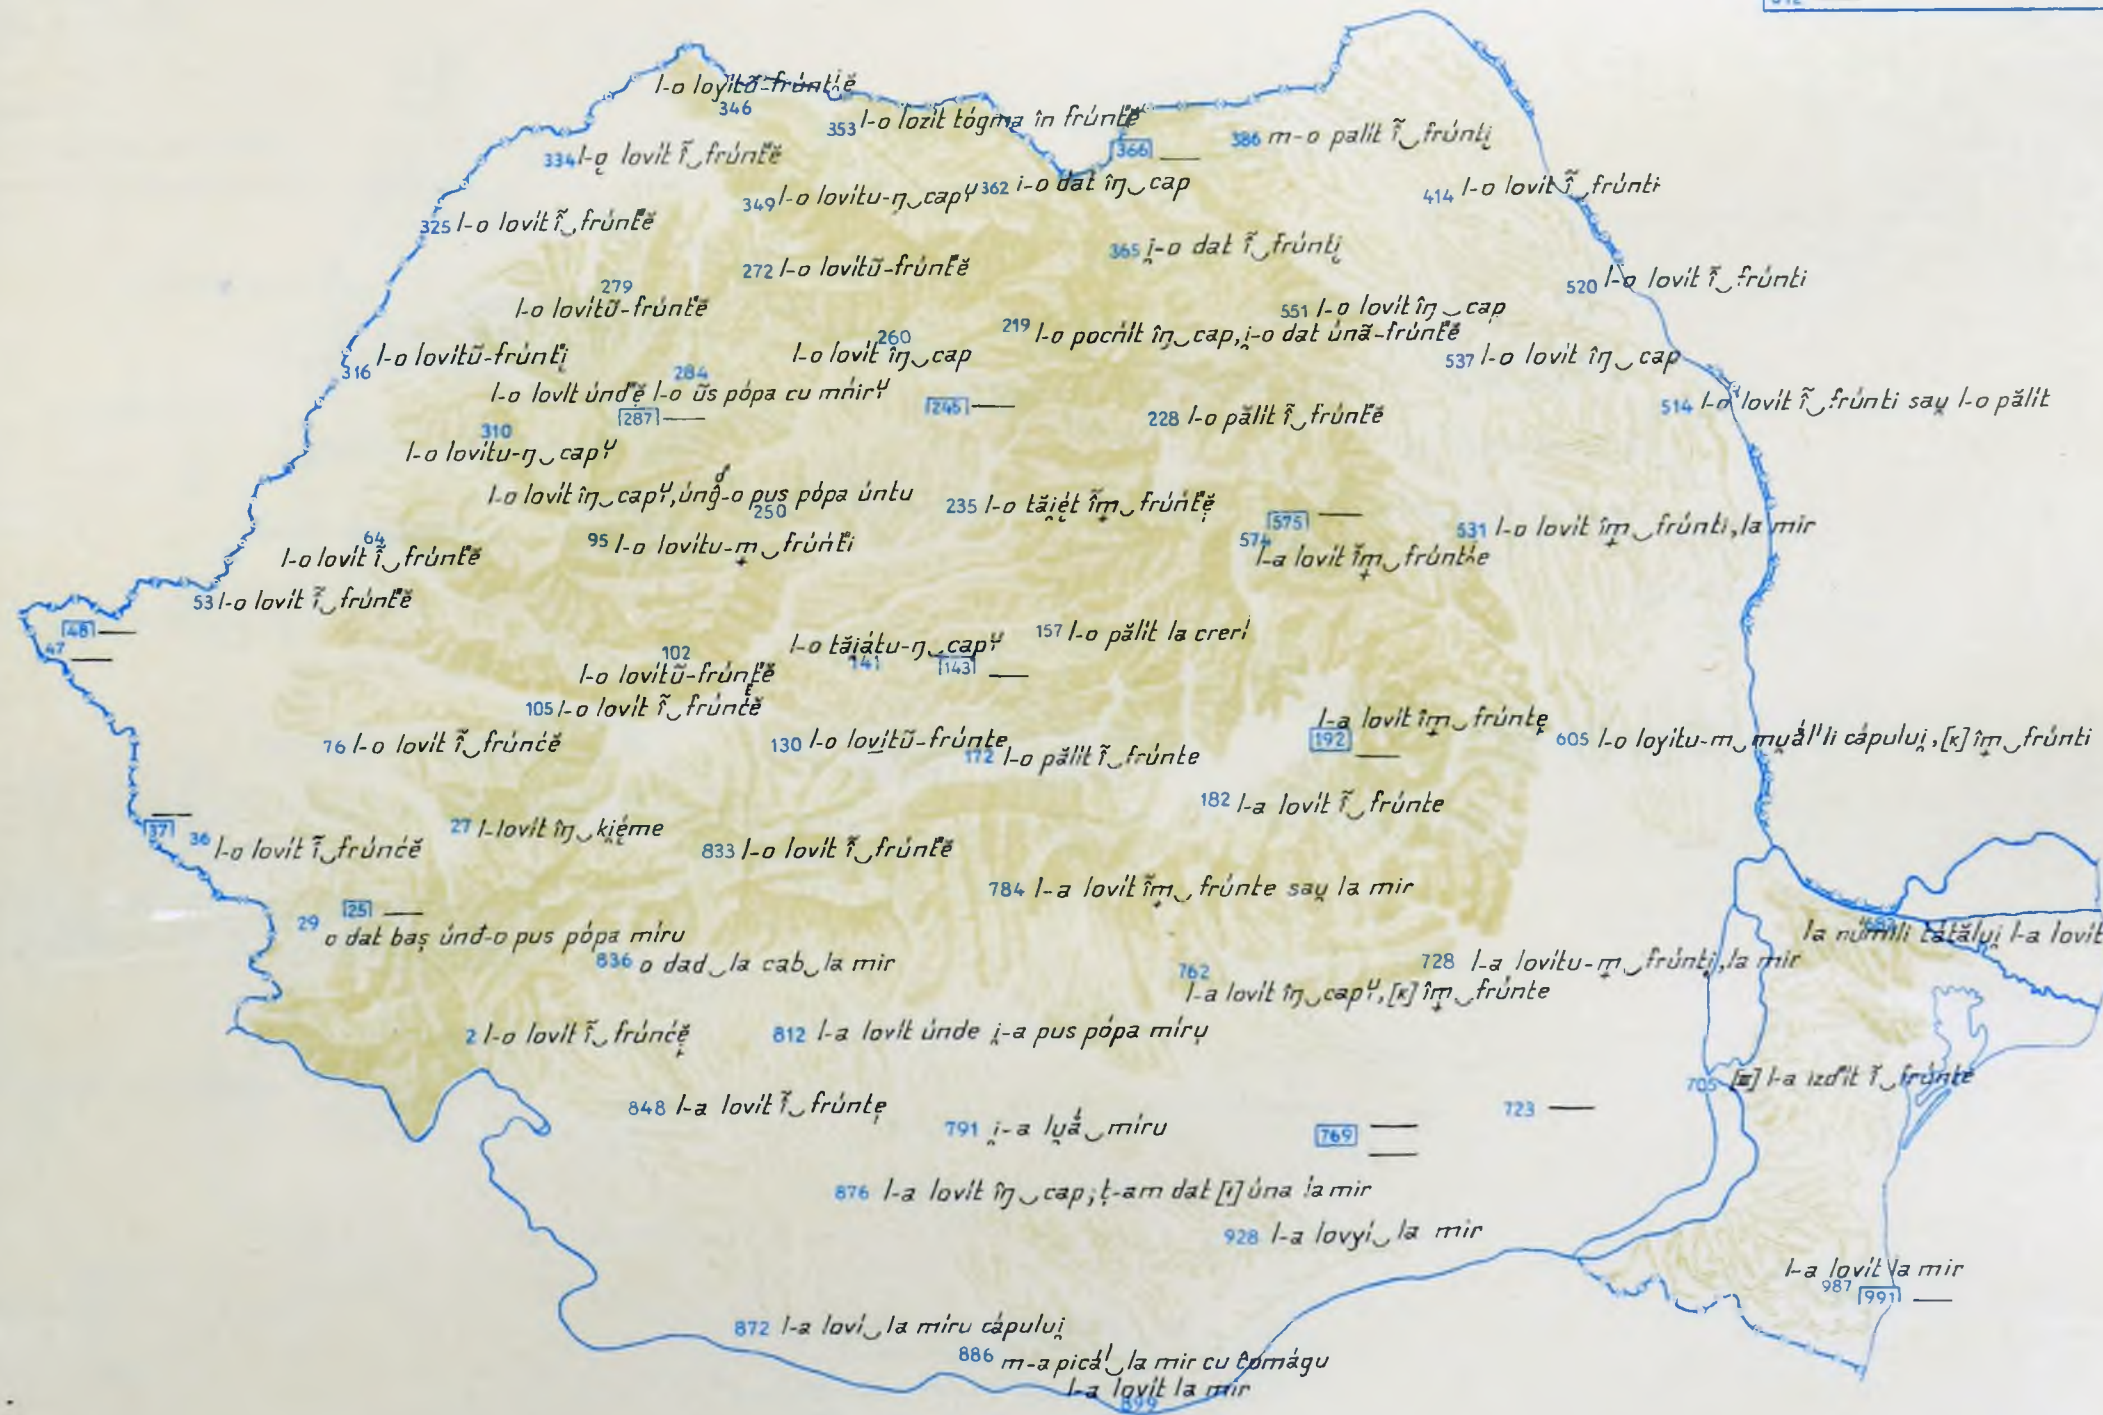 l-o loyítỗ-frúntĕ
346
353 l-o lozít tógma în frúntĕ
334 l-o̯ lovít ĩ‿frúntĕ
366 —
386 m-o palít ĩ‿frúnti̯
349 l-o lovítu-ŋ‿capᶣ
362 i-o dat îŋ‿cap
414 l-o lovít ĩ‿frúnti
325 l-o lovít ĩ‿frúntĕ
365 i̯-o dat ĩ‿frúnti̯
272 l-o lovítũ-frúntĕ
520 l-o lovít ĩ‿frúnti
279
l-o lovítũ-frúntĕ
551 l-o lovít îŋ‿cap
219 l-o pocńít îŋ‿cap, i̯-o dat únã-frúntĕ
260
l-o lovít îŋ‿cap
316 l-o lovítũ-frúnti̯
537 l-o lovít îŋ‿cap
284
l-o lovít únďĕ l-o ũs pópa cu mńirᶣ
287 —
245 —
514 l-o lovít ĩ‿frúnti sau̯ l-o pălít
228 l-o pălít ĩ‿frúntĕ
310
l-o lovítu-ŋ‿capᶣ
l-o lovít îŋ‿capᶣ, úng̑-o pus pópa úntu
250
235 l-o tăi̯ét ĩm̩‿frúńtĕ
575 —
531 l-o lovít îm̩‿frúnti, la mir
574
l-a lovít ĩm̩‿frúnthe
64
l-o lovít ĩ‿frúntĕ
95 l-o lovítu-m̩‿frúńti
53 l-o lovít ĩ‿frúntĕ
48 —
47 —
157 l-o pălít la creri
l-o tăi̯átu-ŋ‿capᶣ
141
143 —
102
l-o lovítũ-frúntĕ
105 l-o lovít ĩ‿frúnćĕ
76 l-o lovít ĩ‿frúnćĕ
130 l-o lovítũ-frúnte
172 l-o pălít ĩ‿frúnte
l-a lovít îm̩‿frúntẹ
192 —
605 l-o loyítu-m‿mu̯ál'li cápului̯, [к] îm̩‿frúnti
182 l-a lovít ĩ‿frúnte
37 —
36 l-o lovít ĩ‿frúnćĕ
27 l-lovít îŋ‿ki̯éme
833 l-o lovít ĩ‿frúntĕ
784 l-a lovít ĩm̩‿frúnte sau̯ la mir
25 —
29 o dat baș únd-o pus pópa míru
836 o dad‿la cab‿la mir
la númili tátălui̯ l-a lovít
682
728 l-a lovítu-m̩‿frúnti̯, la mir
762
l-a lovít îŋ‿capᶣ, [к] îm̩‿frúnte
2 l-o lovít ĩ‿frúnćĕ
812 l-a lovít únde i̯-a pus pópa míru̯
705 l-a izďít ĩ‿frúntĕ
848 l-a lovít ĩ‿frúntẹ
723 —
791 i̯-a lu̯á‿míru
769 —
876 l-a lovít îŋ‿cap; ț-am dat [i] úna la mir
928 l-a lovyí‿la mir
l-a lovít la mir
987 991 —
872 l-a loví‿la míru cápului̯
886 m-a picá‿la mir cu ĉomágu
l-a lovít la mir
899